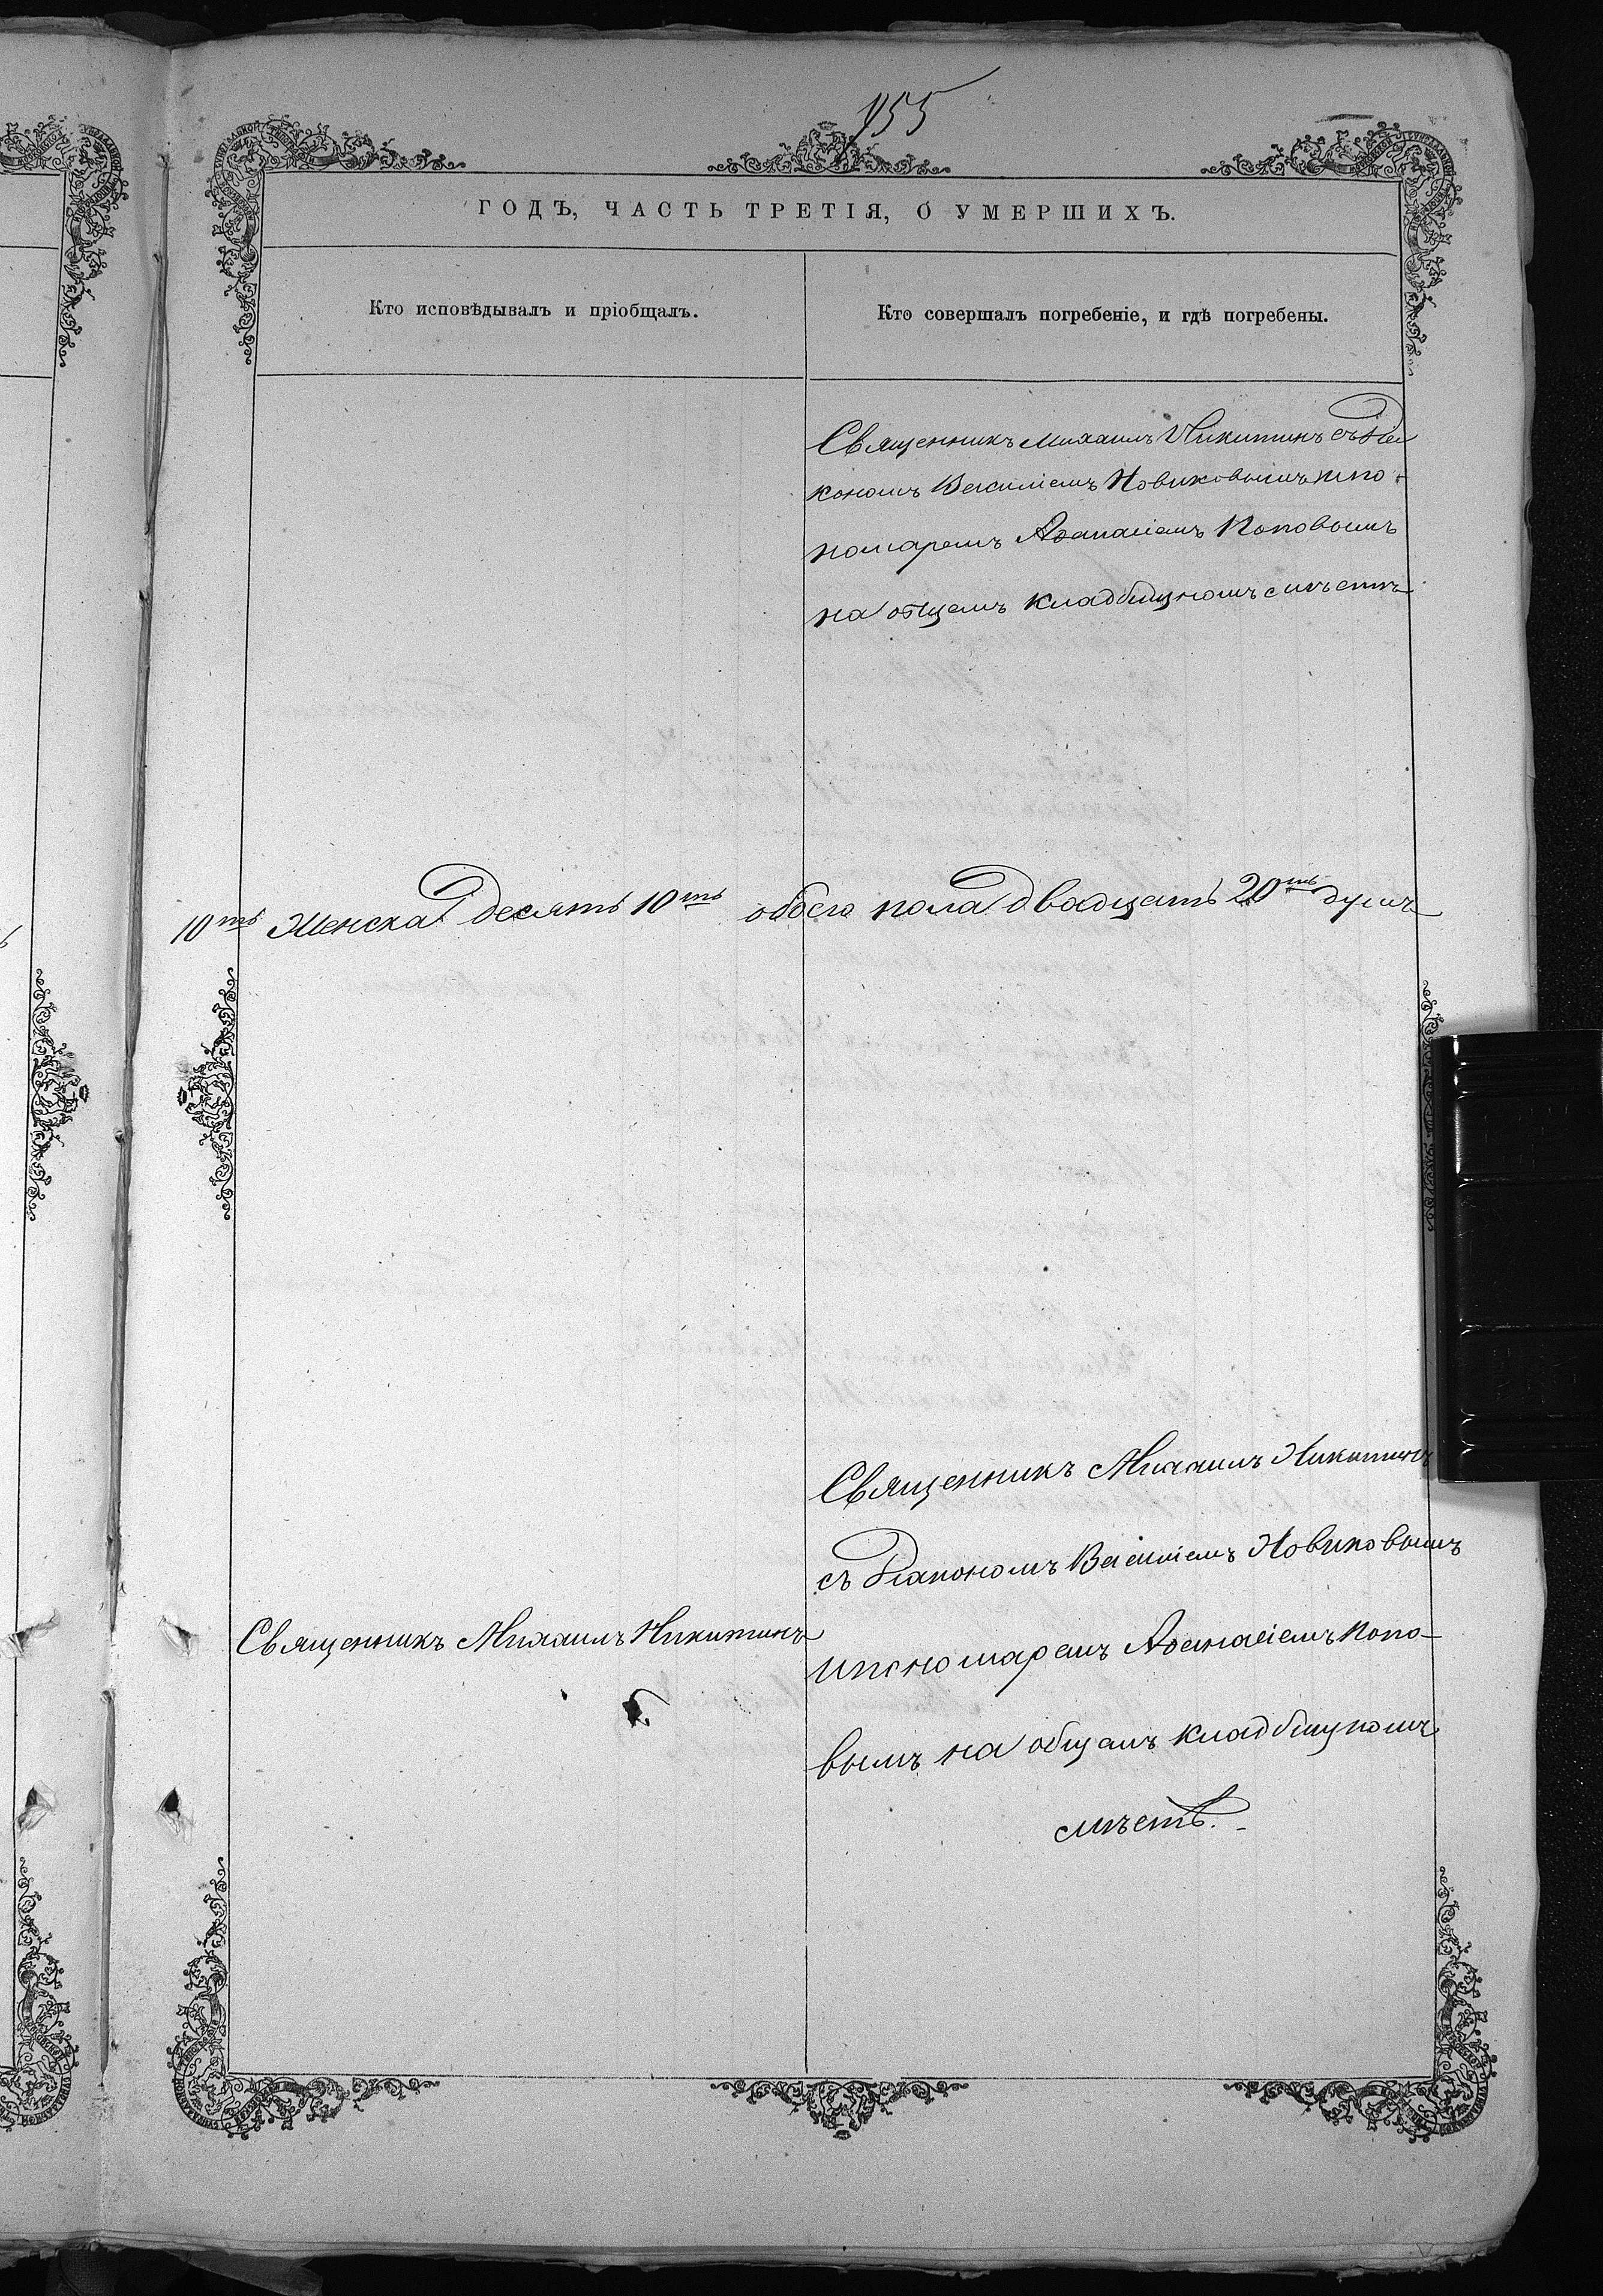 155
ГОДЪ, ЧАСТЬ ТРЕТІЯ, О УМЕРШИХЪ.
Кто исповѣдывалъ и пріобщалъ.
Кто совершалъ погребеніе, и гдѣ погребены.
Священникъ Михаилъ Никитинъ съ діа
кономъ Василіемъ Новиковымъ и по-
номаремъ Аѳанасіемъ Поповымъ
на общемъ кладбищномъ мѣстѣ
10ть Женска десять 10ть обоего пола двадцать 20ть душъ
Священникъ Михаилъ Никитинъ
Священникъ Михаилъ Никитинъ
съ діакономъ Василіемъ Новиковымъ
и пономаремъ Аѳанасіемъ Попо-
вымъ на общемъ кладбищномъ
мѣстѣ.